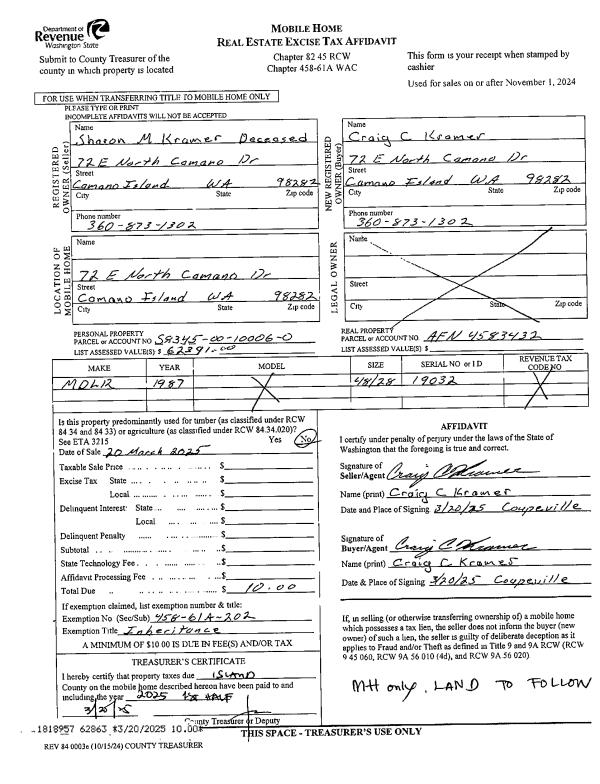 Department of
Revenue
Washington State
MOBILE HOME
REAL ESTATE EXCISE TAX AFFIDAVIT
Submit to County Treasurer of the
county in which property is located
Chapter 82 45 RCW
Chapter 458-61A WAC
This form is your receipt when stamped by
cashier
Used for sales on or after November 1, 2024
FOR USE WHEN TRANSFERRING TITLE TO MOBILE HOME ONLY
PLEASE TYPE OR PRINT
INCOMPLETE AFFIDAVITS WILL NOT BE ACCEPTED
REGISTERED OWNER (Seller)
Name
Sharon M Kramer Deceased
72 E North Camano Dr
Street
Camano Island WA 98282
City State Zip code
Phone number
360-873-1302
NEW REGISTERED OWNER (Buyer)
Name
Craig C Kramer
72 E North Camano Dr
Street
Camano Island WA 98282
City State Zip code
Phone number
360-873-1302
LOCATION OF MOBILE HOME
Name
72 E North Camano Dr
Street
Camano Island WA 98282
City State Zip code
LEGAL OWNER
Name
Street
City State Zip code
PERSONAL PROPERTY
PARCEL or ACCOUNT NO S8345-00-10006-0
LIST ASSESSED VALUE(S) $ 62391.00
REAL PROPERTY
PARCEL or ACCOUNT NO. AFN 4583432
LIST ASSESSED VALUE(S) $
MAKE YEAR MODEL SIZE SERIAL NO or I D REVENUE TAX CODE NO
MDLR 1987 X 48/28 19032 X
Is this property predominantly used for timber (as classified under RCW
84 34 and 84 33) or agriculture (as classified under RCW 84.34.020)?
See ETA 3215 Yes No
Date of Sale 20 March 2025
Taxable Sale Price $
Excise Tax State $
Local $
Delinquent Interest: State $
Local $
Delinquent Penalty $
Subtotal $
State Technology Fee $
Affidavit Processing Fee $
Total Due $ 10.00
If exemption claimed, list exemption number & title:
Exemption No (Sec/Sub) 458-61A-202
Exemption Title Inheritance
A MINIMUM OF $10 00 IS DUE IN FEE(S) AND/OR TAX
TREASURER'S CERTIFICATE
I hereby certify that property taxes due ISLAND
County on the mobile home described hereon have been paid to and
including the year 2025 HALF
3/20/25
County Treasurer or Deputy
AFFIDAVIT
I certify under penalty of perjury under the laws of the State of
Washington that the foregoing is true and correct.
Signature of
Seller/Agent Craig C Kramer
Name (print) Craig C Kramer
Date and Place of Signing 3/20/25 Coupeville
Signature of
Buyer/Agent Craig C Kramer
Name (print) Craig C Kramer
Date & Place of Signing 3/20/25 Coupeville
If, in selling (or otherwise transferring ownership of) a mobile home
which possesses a tax lien, the seller does not inform the buyer (new
owner) of such a lien, the seller is guilty of deliberate deception as it
applies to Fraud and/or Theft as defined in Title 9 and 9A RCW (RCW
9 45 060, RCW 9A 56 010 (4d), and RCW 9A 56 020)
MH only, LAND TO FOLLOW
1818957 62863 3/20/2025 10.00
THIS SPACE - TREASURER'S USE ONLY
REV 84 0003e (10/15/24) COUNTY TREASURER